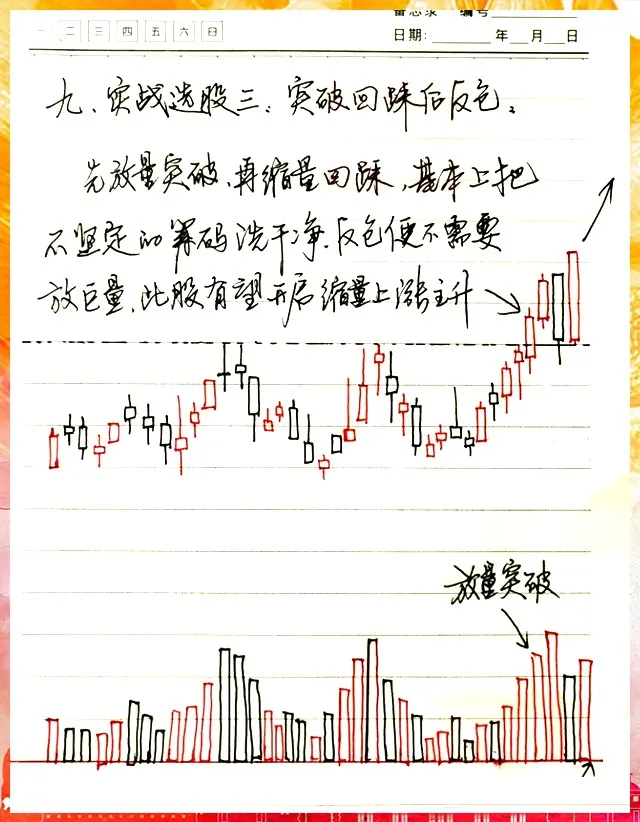 备忘录 编号
一 二 三 四 五 六 日
日期: 年 月 日
九、实战选股三：突破回踩后反包。
先放量突破，再缩量回踩，基本上把
不坚定的筹码洗干净，反包便不需要
放巨量，此股有望开启缩量上涨主升
放量突破